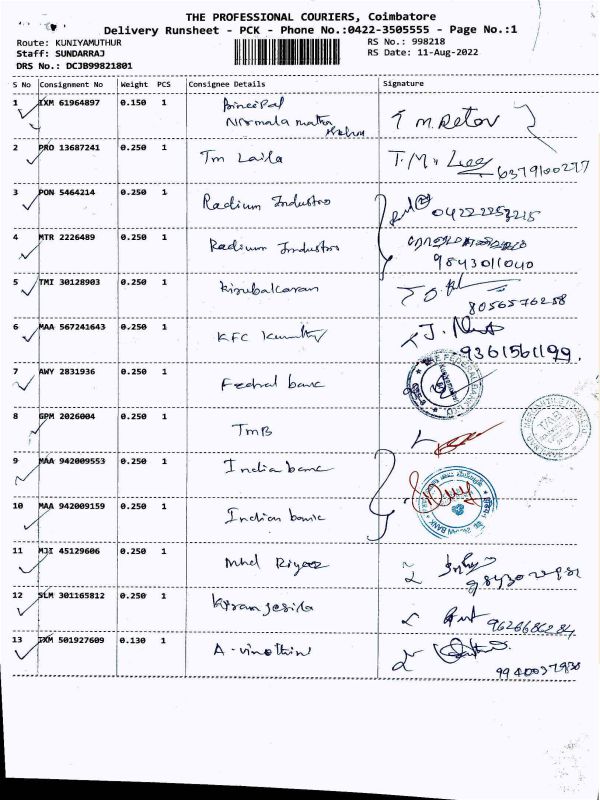 THE PROFESSIONAL COURIERS, Coimbatore
Delivery Runsheet - PCK - Phone No.:0422-3505555 - Page No.:1
Route: KUNIYAMUTHUR RS No.: 998218
Staff: SUNDARRAJ RS Date: 11-Aug-2022
DRS No.: DCJB99821801
S No Consignment No Weight PCS Consignee Details Signature
1 IXM 61964897 0.150 1 Principal
Nirmala matha
2 PRO 13687241 0.250 1 Tm Laila T.M. 6379100277
3 PON 5464214 0.250 1 Radium Industries 04222253215
4 MTR 2226489 0.250 1 Radium Industries
9843011040
5 TMI 30128903 0.250 1 kirubakaran
8056576258
6 MAA 567241643 0.250 1 KFC J.
9361561199.
7 AWY 2831936 0.250 1 Fedral banc
8 GPM 2026004 0.250 1 TMB
9 MAA 942009553 0.250 1 India banc
10 MAA 942009159 0.250 1 Indian banic
11 MJI 45129606 0.250 1 Mhd Riyaz
12 SLM 301165812 0.250 1 Kiran jesila 9626686284
13 IXM 501927609 0.130 1 A. vinothin